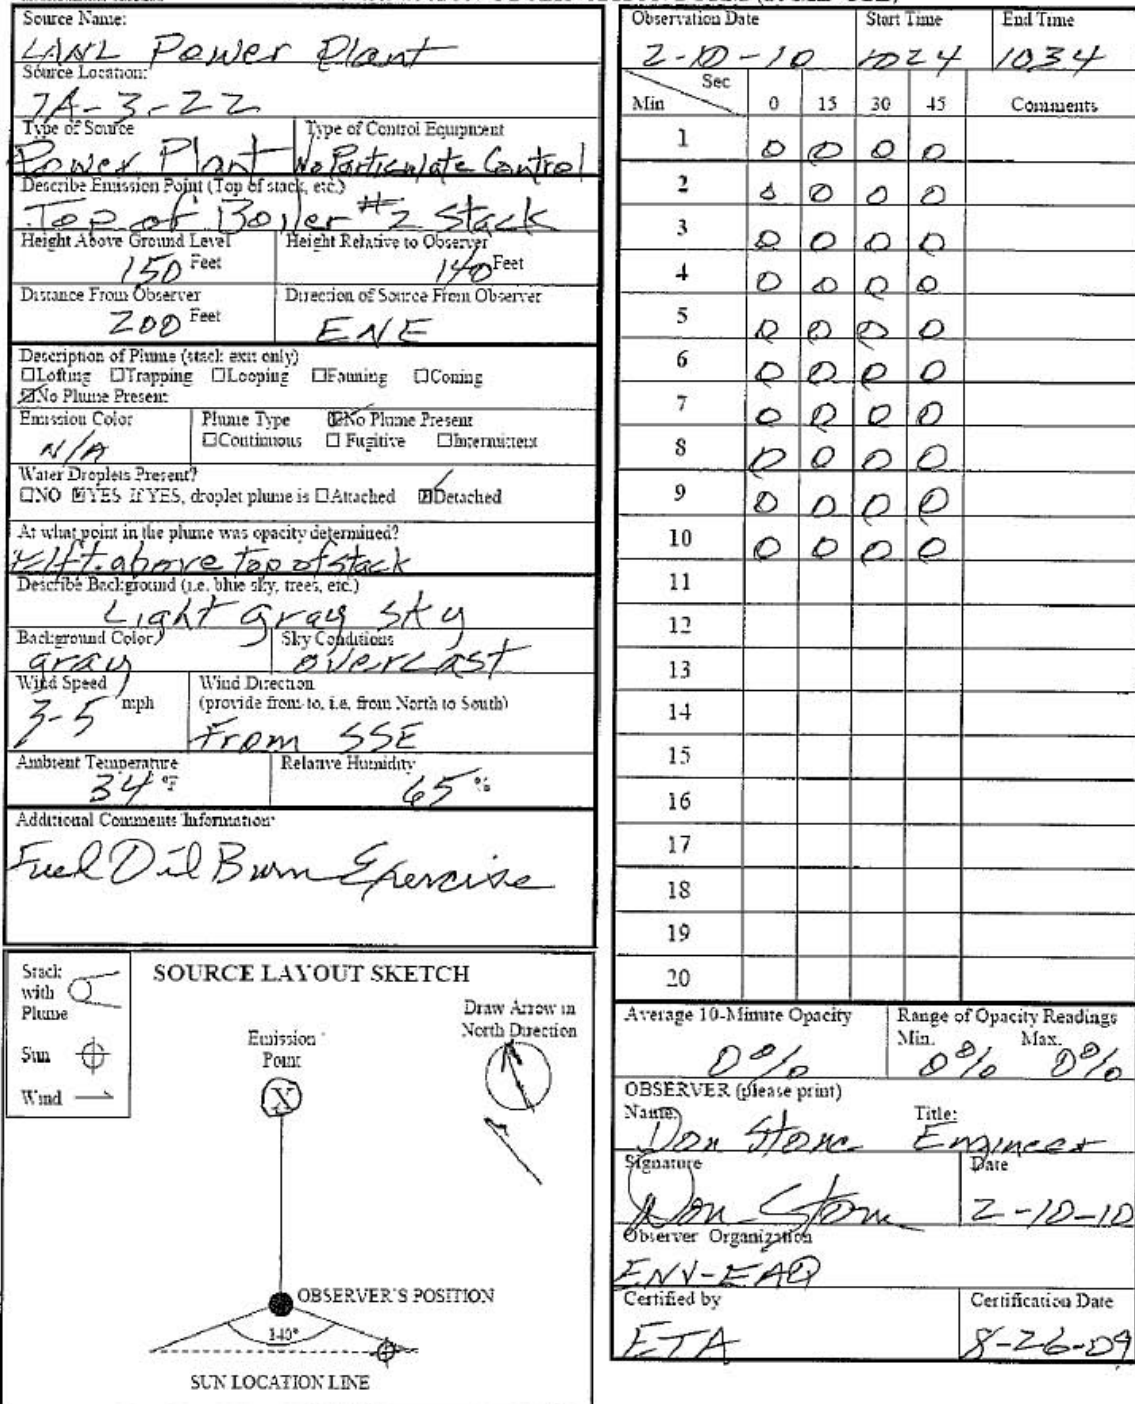 Source Name:
LANL Power Plant
Source Location:
TA-3-22
Type of Source
Power Plant
Type of Control Equipment
No Particulate Control
Describe Emission Point (Top of stack, etc.)
Top of Boiler #2 Stack
Height Above Ground Level
150 Feet
Height Relative to Observer
140 Feet
Distance From Observer
200 Feet
Direction of Source From Observer
ENE
Description of Plume (stack exit only)
☐Lofting ☐Trapping ☐Looping ☐Fanning ☐Coning
☒No Plume Present
Emission Color
N/A
Plume Type ☒No Plume Present
☐Continuous ☐Fugitive ☐Intermittent
Water Droplets Present?
☐NO ☒YES If YES, droplet plume is ☐Attached ☒Detached
At what point in the plume was opacity determined?
1ft. above top of stack
Describe Background (i.e. blue sky, trees, etc.)
Light gray sky
Background Color
gray
Sky Conditions
overcast
Wind Speed
3-5 mph
Wind Direction
(provide from-to, i.e. from North to South)
From SSE
Ambient Temperature
34 °F
Relative Humidity
65 %
Additional Comments Information:
Fuel Oil Burn Exercise
Stack with Plume
Sun
Wind
SOURCE LAYOUT SKETCH
Draw Arrow in
North Direction
Emission
Point
X
OBSERVER'S POSITION
140°
SUN LOCATION LINE
Observation Date Start Time End Time
2-10-10 1024 1034
Sec
Min 0 15 30 45 Comments
1 0 0 0 0
2 0 0 0 0
3 0 0 0 0
4 0 0 0 0
5 0 0 0 0
6 0 0 0 0
7 0 0 0 0
8 0 0 0 0
9 0 0 0 0
10 0 0 0 0
11
12
13
14
15
16
17
18
19
20
Average 10-Minute Opacity
0%
Range of Opacity Readings
Min. Max.
0% 0%
OBSERVER (please print)
Name: Title:
Don Stone Engineer
Signature Date
Don Stone 2-10-10
Observer Organization
ENV-EAQ
Certified by Certification Date
ETA 8-26-09